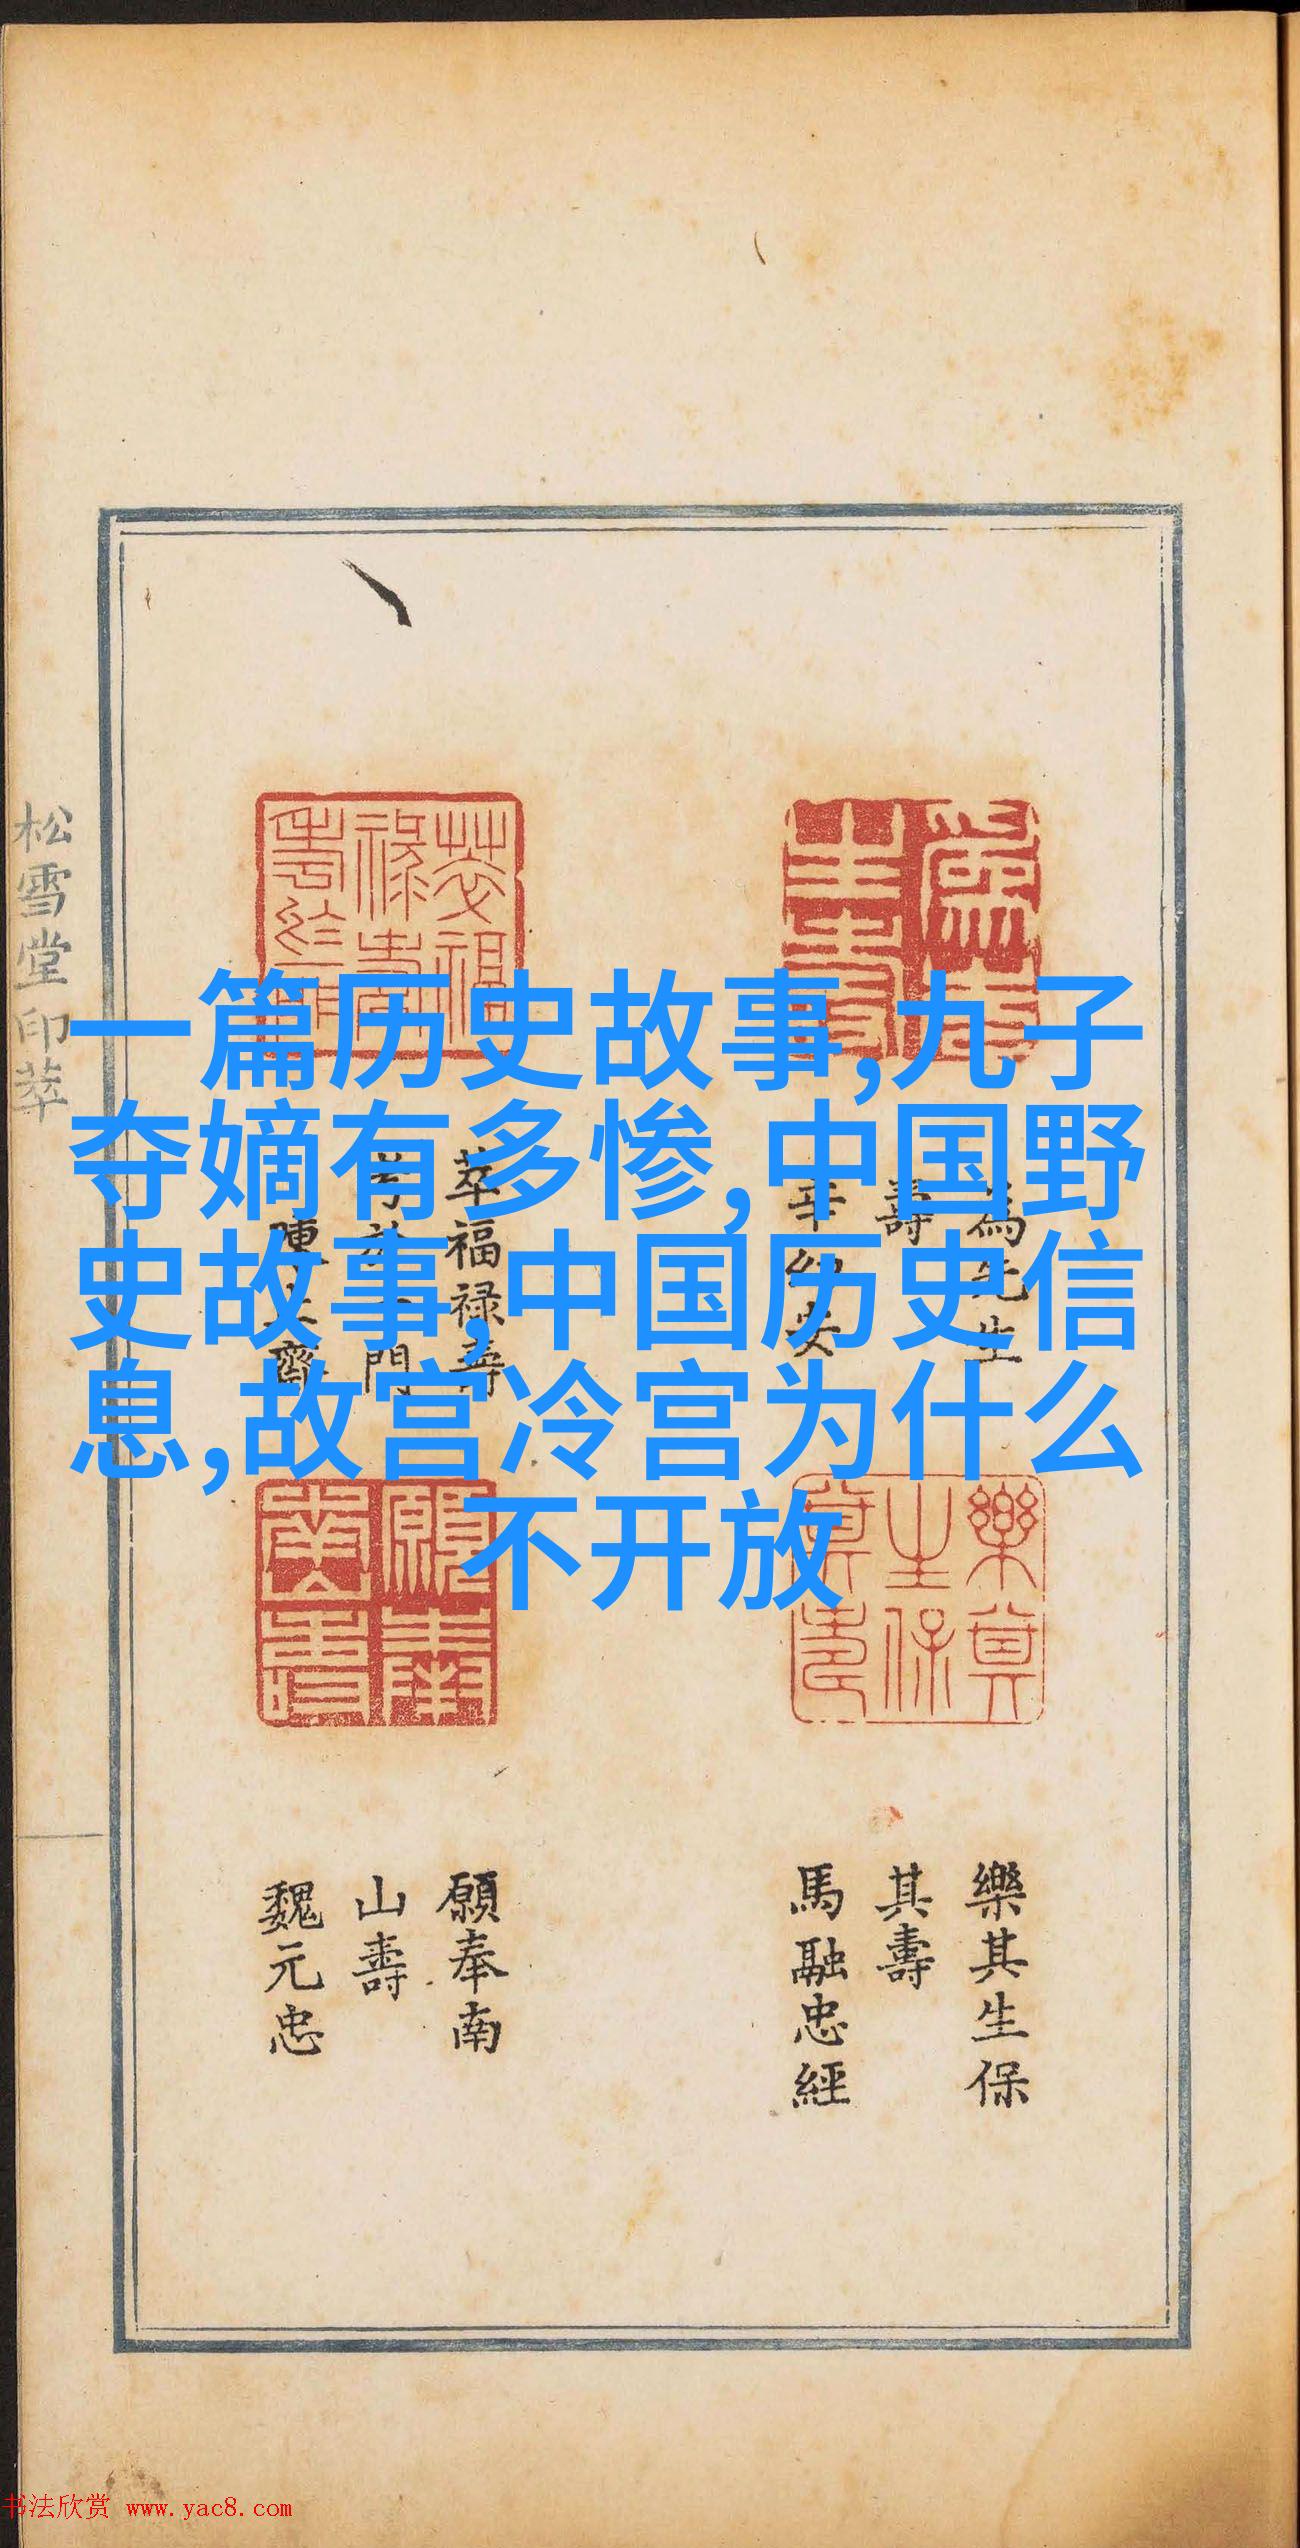 一篇历史故事,九子
夺嫡有多惨,中国野
史故事,中国历史信
息,故宫冷宫为什么
不开放
松雪堂印萃
為先生
壽
辛幼安
萃福禄壽
門
齋
樂其生保
其壽
馬融忠經
願奉南
山壽
魏元忠
书法欣赏 www.yac8.com